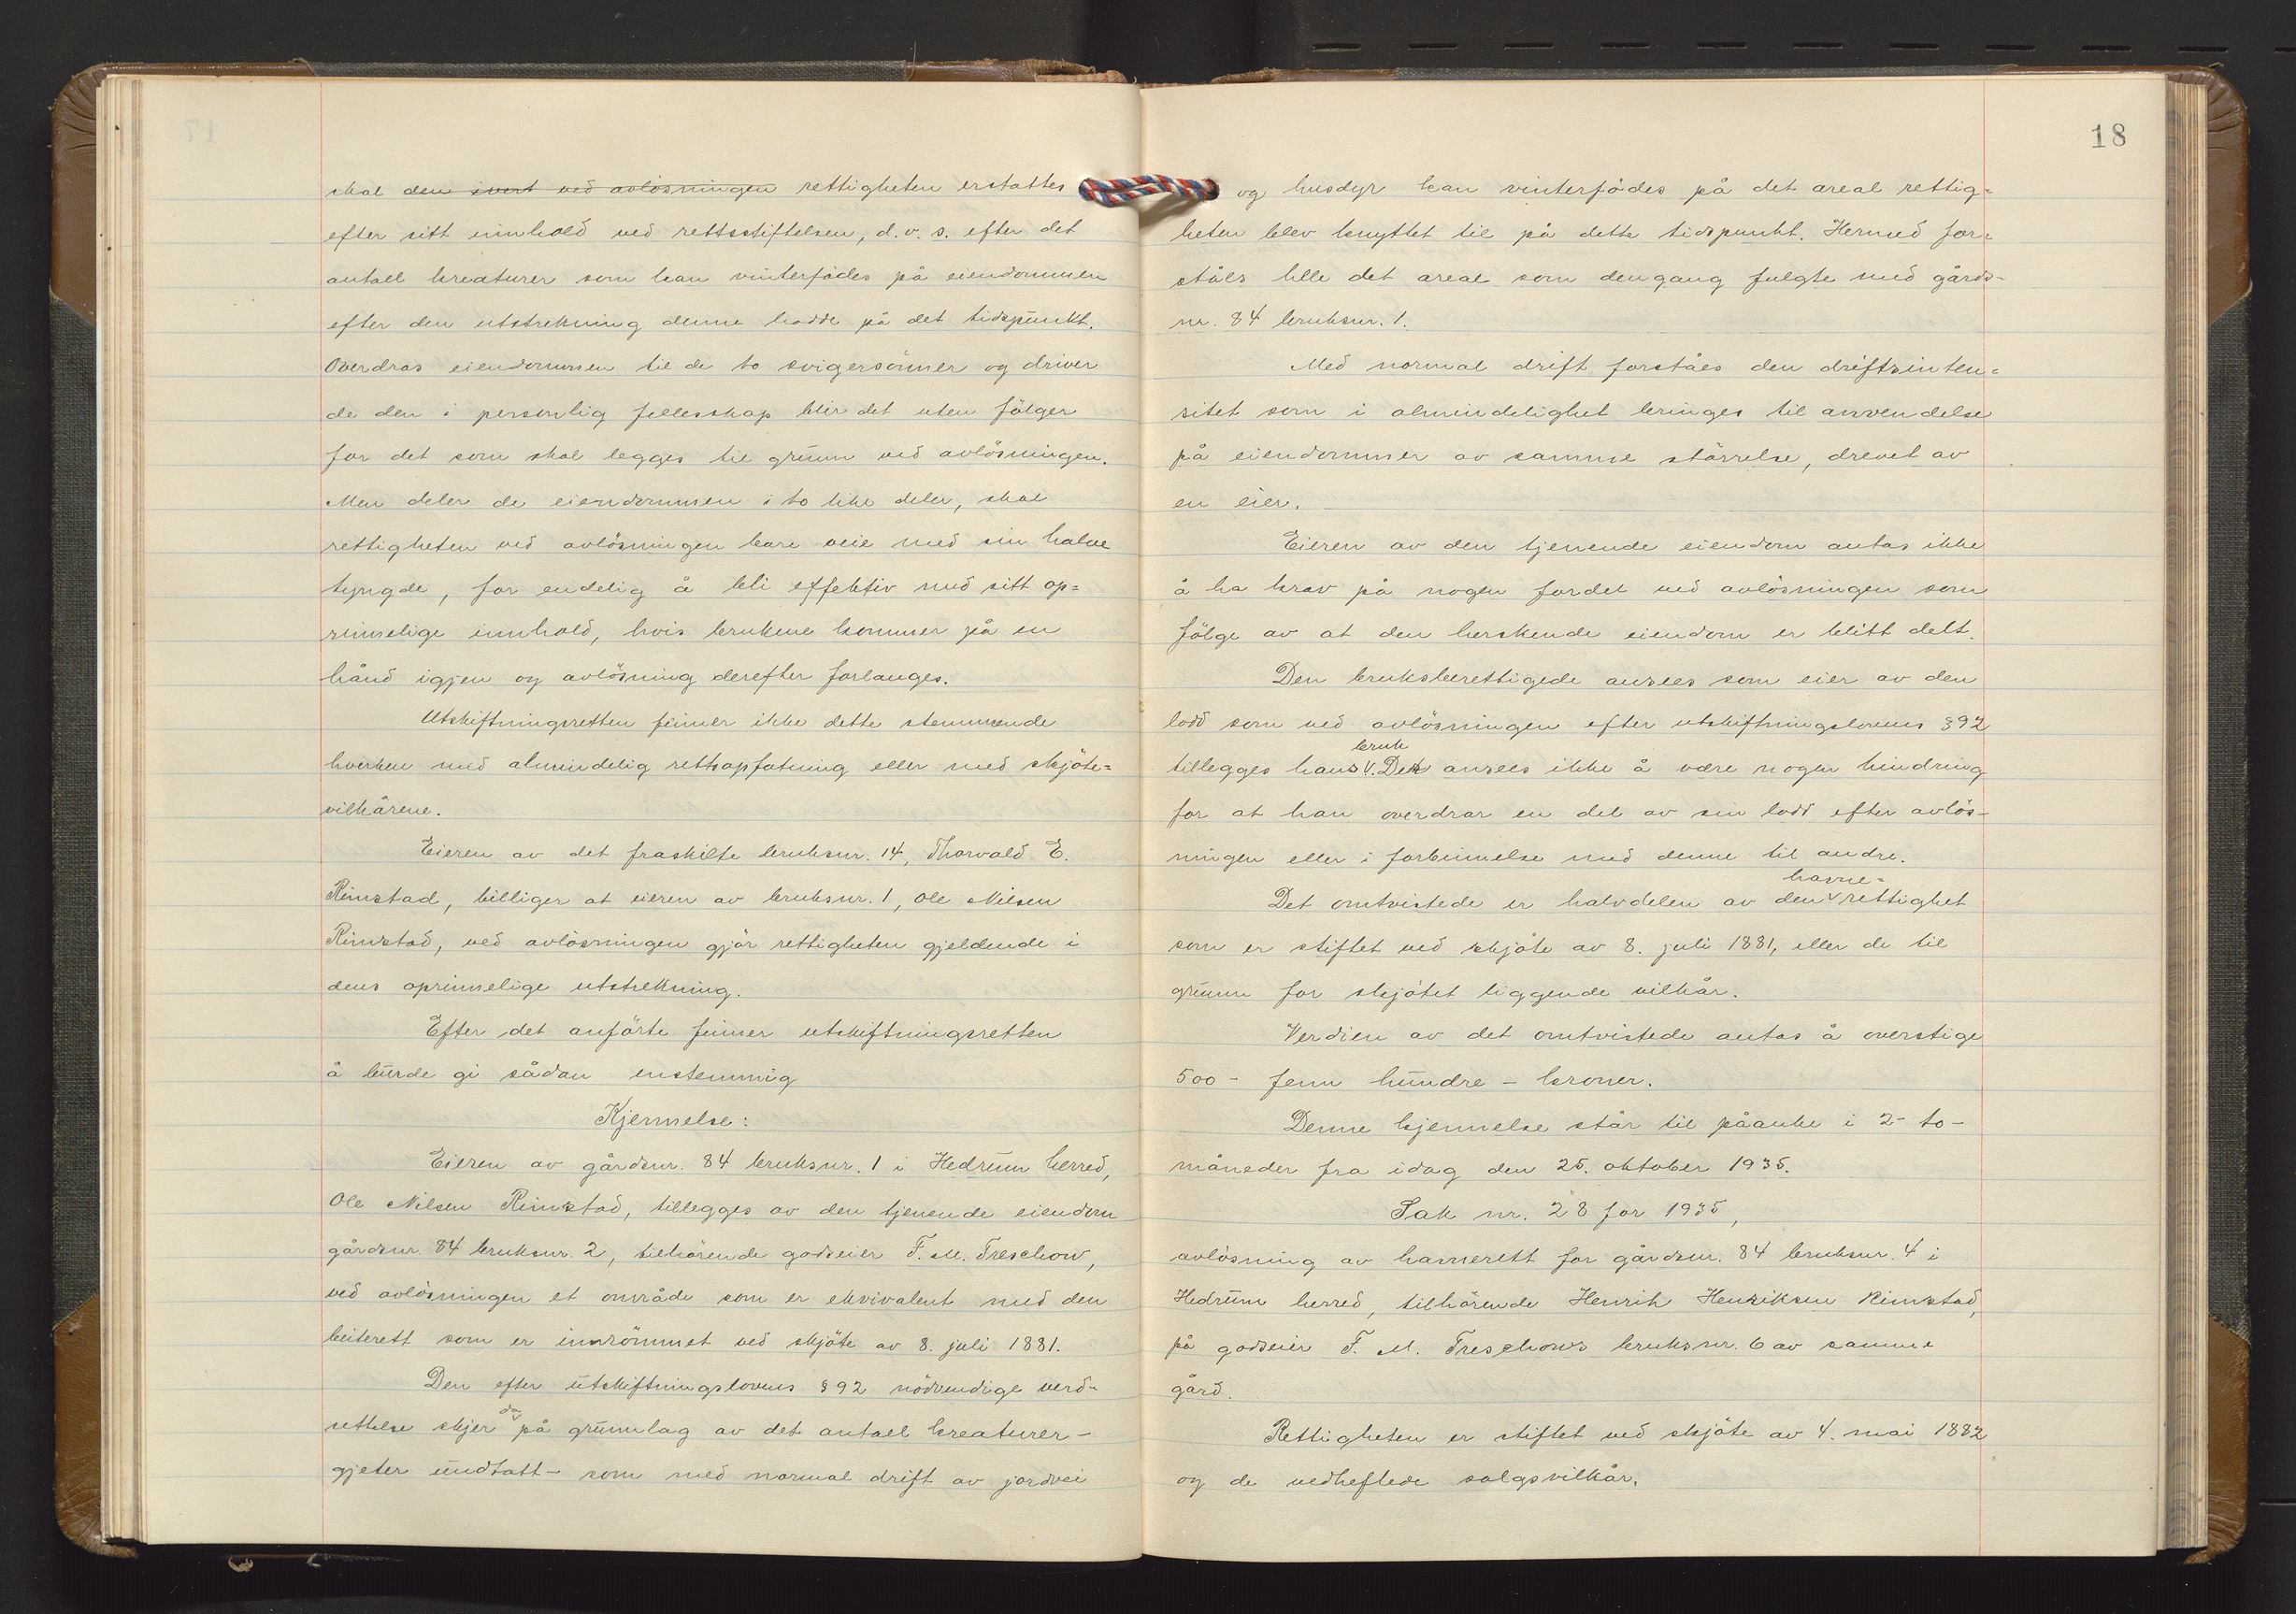 skal den ivert ved avlösningen rettigheten erstattes
efter sitt innhold ved rettsstiftelsen, d.v.s. efter det
antall kreaturer som kan vinterfödes på eiendommen
efter den utstrekning denne hadde på det tidspunkt.
Overdras eiendommen til de to svigersönner og driver
de den i personlig fellesskap blir det uten fölger
for det som skal legges til grunn ved avlösningen.
Men deler de eiendommen i to like deler, skal
rettigheten ved avlösningen bare veie med sin halve
tyngde, for endelig å bli effektiv med sitt op=
rinnelige innhold, hvis brukene kommer på en
hånd igjen og avlösning derefter forlanges.
Utskiftningsretten finner ikke dette stemmende
hverken med almindelig rettsopfatning eller med skjöte=
vilkårene.
Eieren av det fraskilte bruksnr. 14, Thorvald E.
Rimstad, billiger at eieren av bruksnr. 1, Ole Nilsen
Rimstad, ved avlösningen gjör rettigheten gjeldende i
dens oprinnelige utstrekning.
Efter det anförte finner utskiftningsretten
å burde gi sådan enstemmig
Kjennelse:
Eieren av gårdsnr. 84 bruksnr. 1 i Hedrum herred,
Ole Nilsen Rimstad, tillegges av den tjenende eiendom
gårdsnr. 84 bruksnr. 2, tilhörende godseier F. M. Treschow,
ved avlösningen et område som er ekvivalent med den
beiterett som er innrömmet ved skjöte av 8. juli 1881.
Den efter utskiftningslovens § 92 nödvendige verd-
da
settelse skjer på grunnlag av det antall kreaturer-
gjeter undtatt- som med normal drift av jordvei
18
og husdyr kan vinterfödes på det areal rettig=
heten blev knyttet til på dette tidspunkt. Hermed for=
ståes hele det areal som dengang fulgte med gårds-
nr. 84 bruksnr. 1.
Med normal drift forståes den driftsinten=
sitet som i almindelighet bringes til anvendelse
på eiendommer av samme störrelse, drevet av
en eier.
Eieren av den tjenende eiendom antas ikke
å ha krav på nogen fordel ved avlösningen som
fölge av at den herskende eiendom er blitt delt.
Den bruksberettigede ansees som eier av den
lodd som ved avlösningen efter utskiftningslovens § 92
bruk
tillegges hans. Det ansees ikke å være nogen hindring
for at han overdrar en del av sin lodd efter avlös-
ningen eller i forbinnelse med denne til andre.
havne=
Det omtvistede er halvdelen av den rettighet
som er stiftet ved skjöte av 8. juli 1881, eller de til
grunn for skjötet liggende vilkår.
Verdien av det omtvistede antas å overstige
500 - fem hundre - kroner.
Denne kjennelse står til påanke i 2- to-
måneder fra idag den 25. oktober 1935.
Sak nr. 28 for 1935,
avlösning av havnerett for gårdsnr. 84 bruksnr. 4 i
Hedrum herred, tilhörende Henrik Henriksen Rimstad,
på godseier F. M. Treschows bruksnr. 6 av samme
gård.
Rettigheten er stiftet ved skjöte av 4. mai 1882
og de vedheftede salgsvilkår.